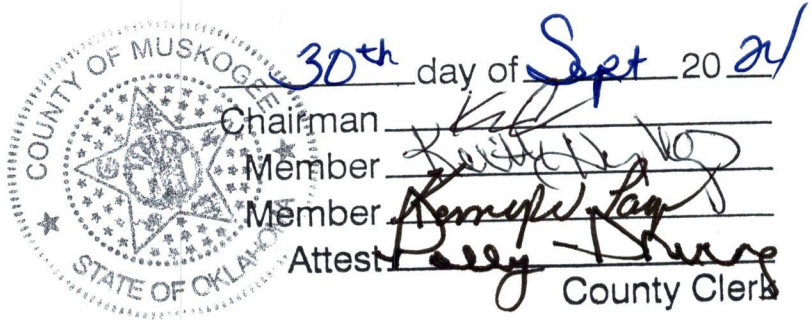 COUNTY OF MUSKOGEE
STATE OF OKLAHOMA
30th day of Sept 20 24
Chairman
Member Keith
Member Kenny
Attest Polly
County Clerk